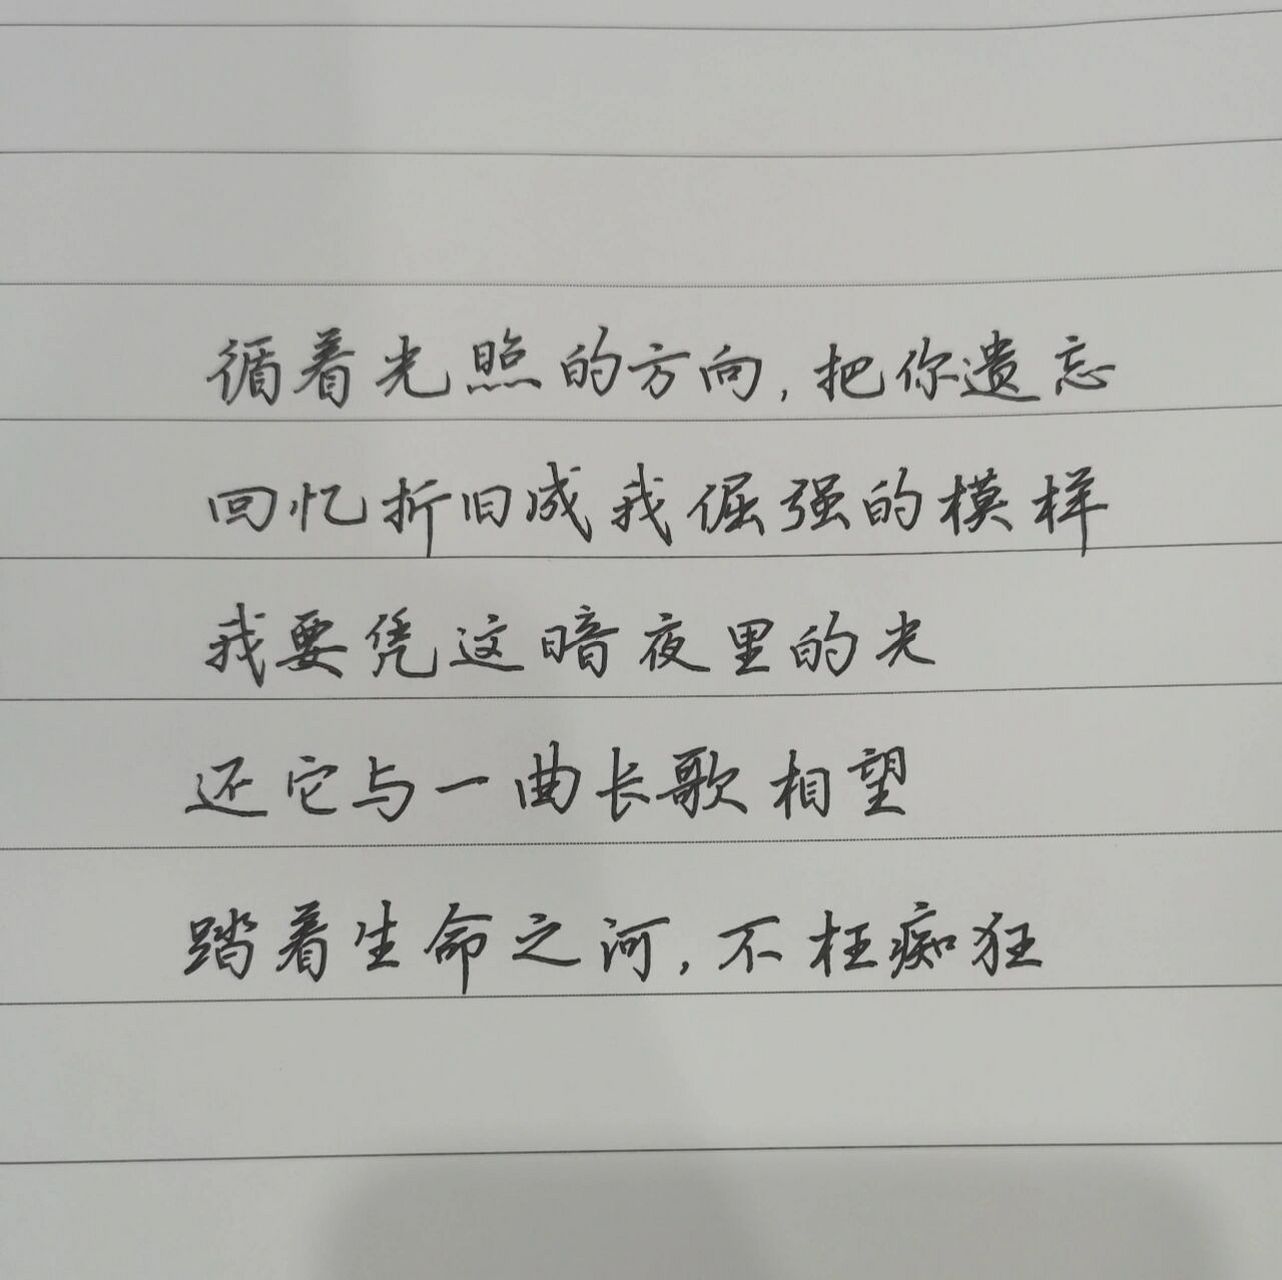 循着光照的方向,把你遗忘
回忆折旧成我倔强的模样
我要凭这暗夜里的光
还它与一曲长歌相望
踏着生命之河,不枉痴狂